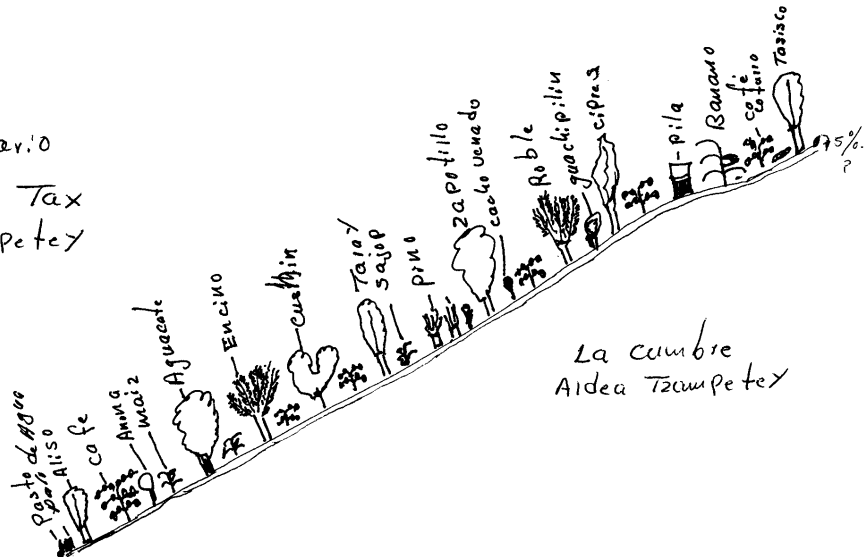 Tax
Pasto de Agua
palo
Aliso
cafe
Anona
maiz
Aguacate
Encino
cushin
Taray
sajop
pino
zapotillo
cacho venado
Roble
guachipilin
cipres
pila
Banano
cafe
Tasisco
75%
?
La cumbre
Aldea Tzampetey